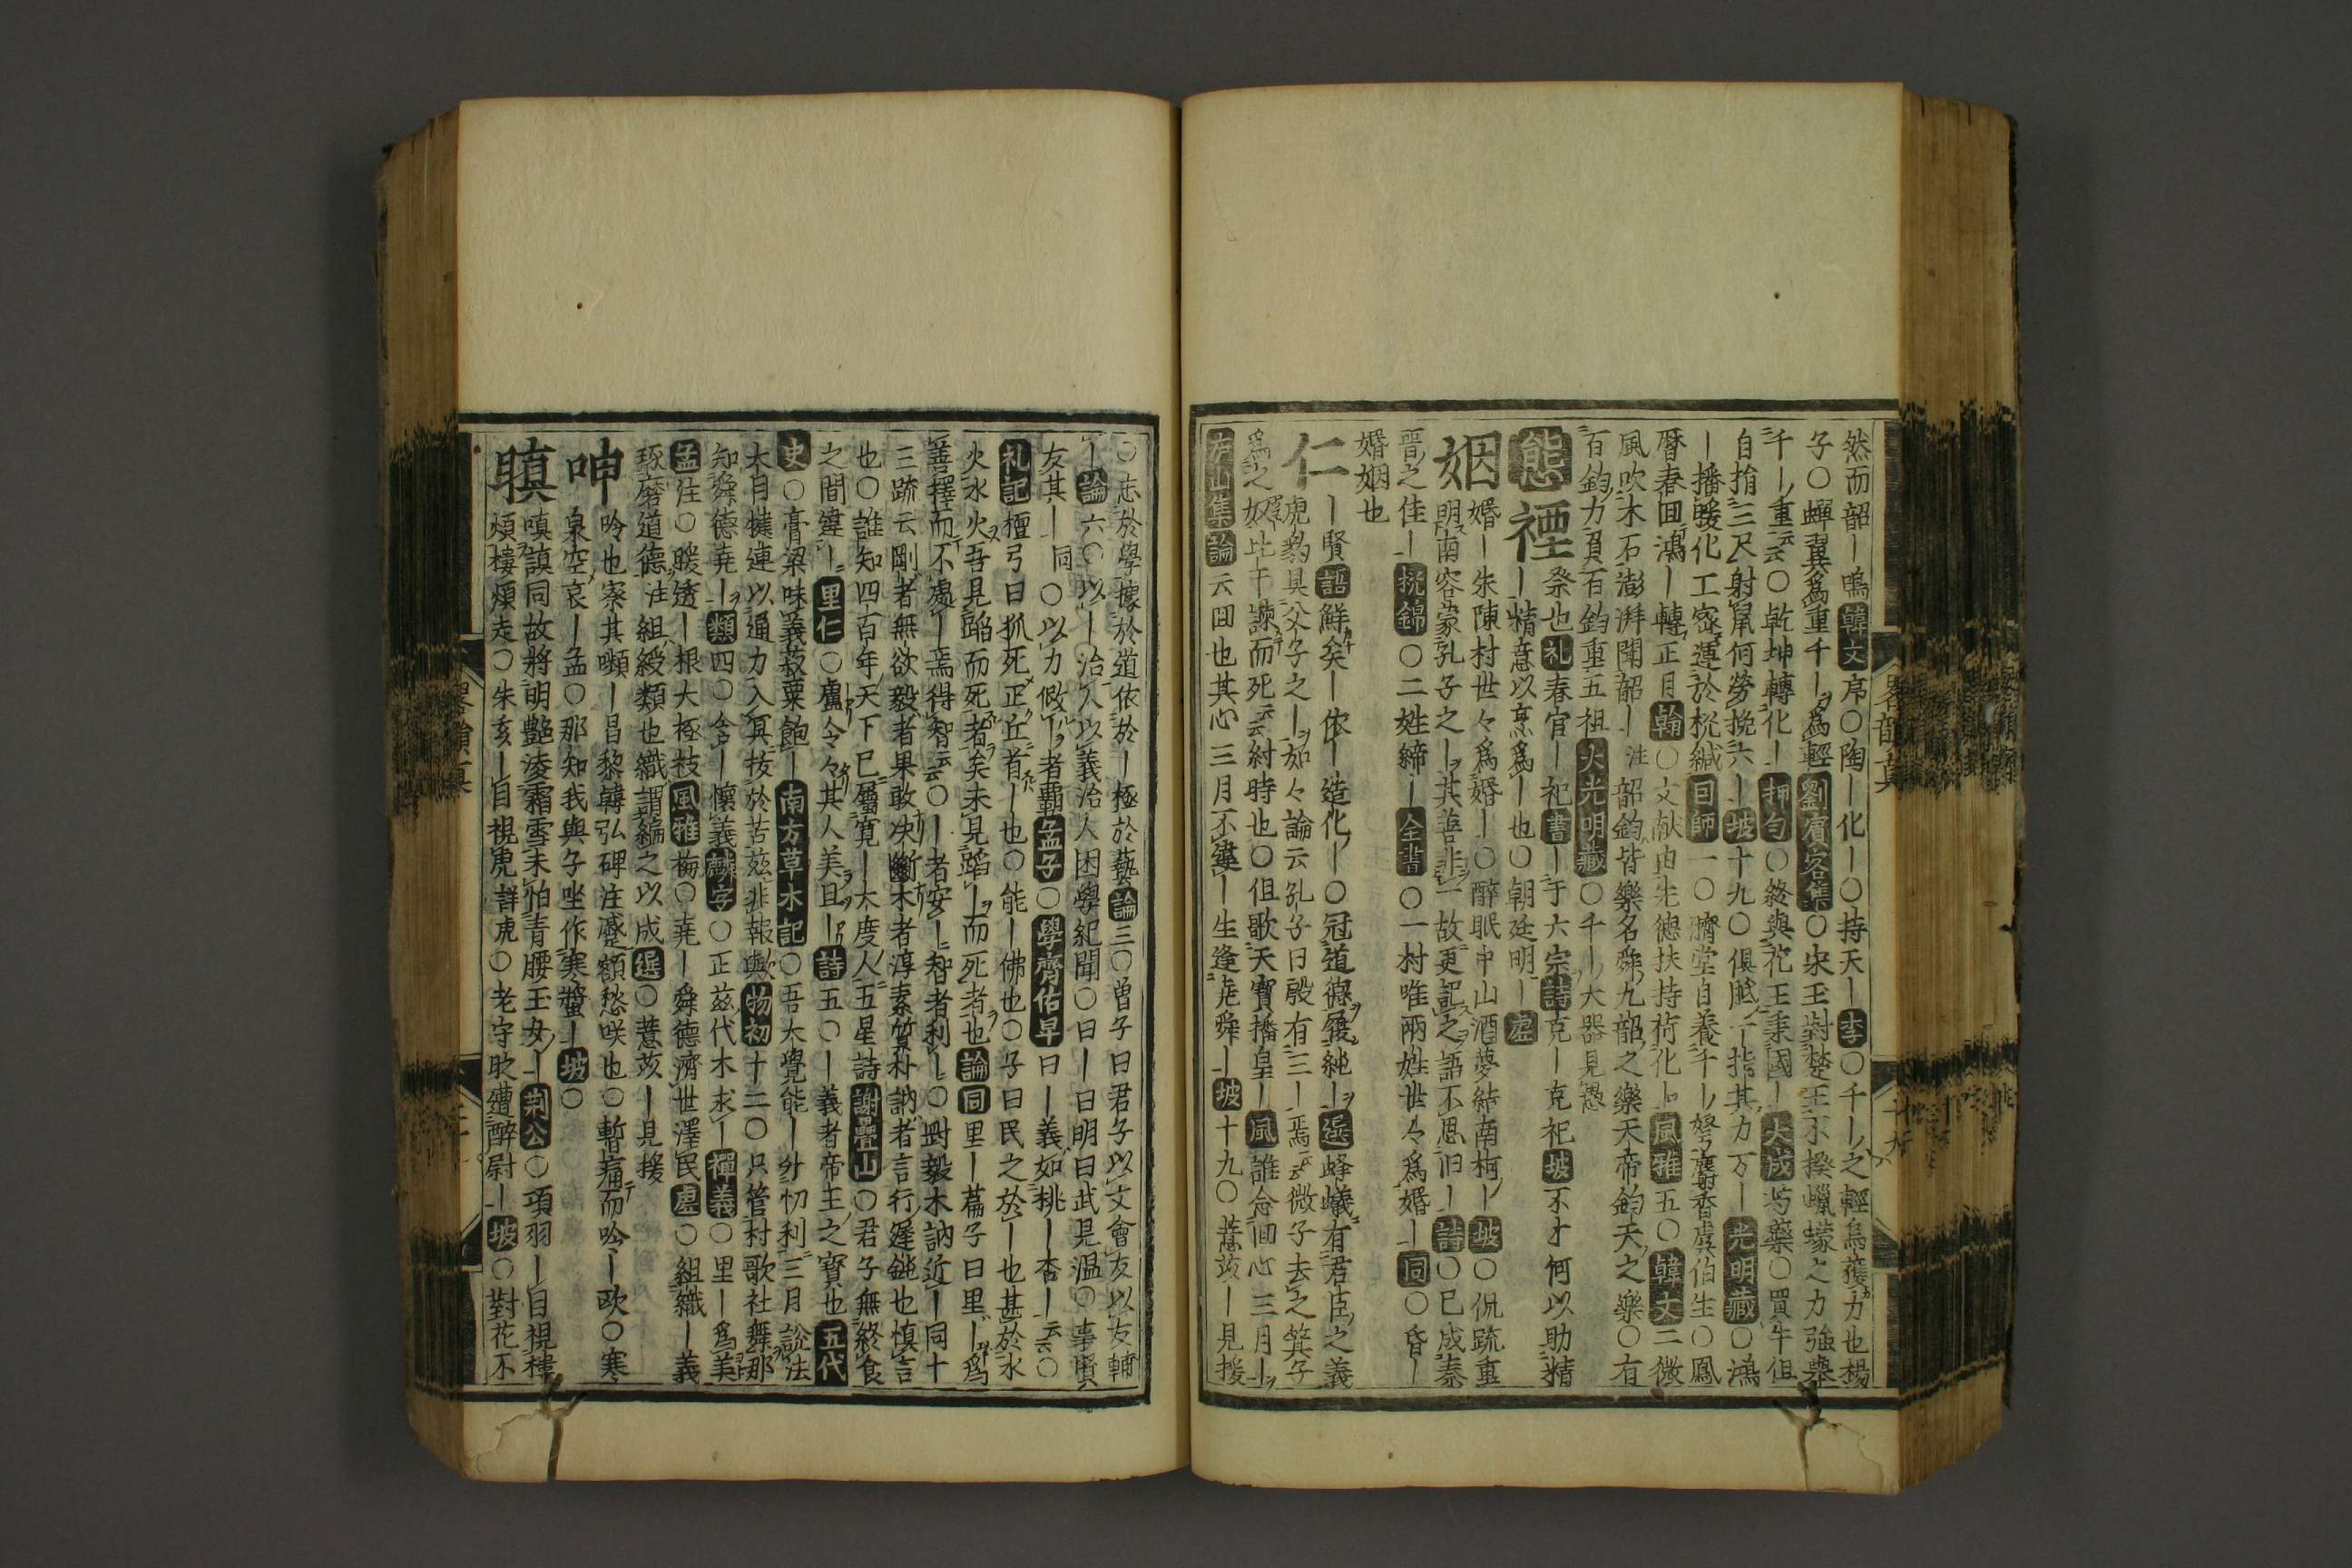 然而韶｜鳴韓文序〇陶｜化｜〇持天｜李〇千｜之輕烏獲力也楊
子〇蟬翼爲重千｜爲輕劉賓客集〇宋玉對楚王不揆蠛蠓之力強擧
千｜重云云〇乾坤轉化｜押匀〇終與花王秉國｜大成芍藥〇買牛但
自指三尺射鼠何勞挽六｜坡十九〇俱胝一指其力万｜光明藏〇鴻
｜播暖化工密運於梡緘｜〇臍堂自養千｜弩麝香虞伯生〇鳳
暦春回鴻｜轉正月翰〇文献由先德扶持荷化｜風雅五〇韓文二微
風吹木石澎湃聞韶｜注韶鈞皆樂名舜九韶之樂天帝鈞天之樂〇有
百鈞力負百鈞重五祖大光明藏〇千｜大器見愚
態禋祭也礼春官｜祀書｜于六宗詩克｜克祀坡不才何以助精
｜精意以烹爲｜也〇朝廷明｜虚
姻婚｜朱陳村世々爲婚｜〇醉眠中山酒夢結南柯｜坡〇侃疏重
明南容蒙孔子之｜其善非一故更記之語不思旧｜詩〇已成秦
晋之佳｜梡錦〇二姓締｜全書〇一村唯兩姓世々爲婚｜同〇昏｜
婚姻也
仁｜賢語鮮矣｜依｜造化｜〇冠道德履純｜選蜂蟻有君臣之義
虎豹具父子之｜如々論云孔子曰殷有三｜焉云云微子去之箕子
爲之奴比干諫而死云云紂時也〇但歌天寶播皇｜風誰念回心三月｜
芦山集論云回也其心三月不違｜生逢尭舜｜坡十九〇薏苡｜見援
〇志於學據於道依於｜極於藝論三〇曽子曰君子以文會友以友輔
｜論六〇以｜治人以義治人困學紀聞〇曰｜曰明曰武見温〇事賢
友其｜同〇以力假｜者覇孟子〇學齊佑早曰｜義如桃｜杏｜云云〇
礼記檀弓曰狐死正丘首｜也〇能｜佛也〇子曰民之於｜也甚於水
火水火吾見蹈而死者矣未見蹈｜而死者也論同里｜篇子曰里｜爲
善擇而不處｜焉得智云云〇｜者安｜智者利｜〇剛毅木訥近｜同十
三疏云剛者無欲毅者果敢决斷木者淳素質朴訥者言行遲鈍也慎言
也〇誰知四百年天下已屬寛｜大度人五星詩謝疊山〇君子無終食
之間違｜里仁〇盧令々其人美且｜詩五〇｜義者帝主之寳也五代
史〇膏梁味義菽粟飽｜南方草木記〇吾大覺能｜外忉利三月説法
太自犢連以通力入冥抜於苦茲非報與物初十二〇只管村歌社舞那
知舜德尭｜類四〇含｜懷義麟字〇正茲代木求｜禪義〇里｜爲美
孟住〇暖透｜根大極枝風雅梅〇尭｜舜德濟世澤民虚〇組織｜義
琢磨道德注組綬類也織謂編之以成選〇薏苡｜見援
呻吟也寮其嚬｜昌黎韓弘碑注蹙額愁咲也〇暫痛而吟｜欧〇寒
泉空哀｜孟〇那知我與子坐作寒螿｜坡〇
瞋嗔謓同故將明艶凌霜雪未怕青腰玉女｜荆公〇項羽｜目視樓
煩樓煩走〇朱亥｜目視虎群虎〇老守眊遭醉尉｜坡〇對花不